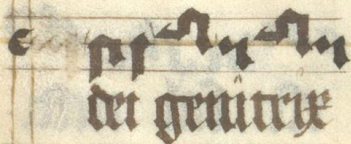 dei genitrix